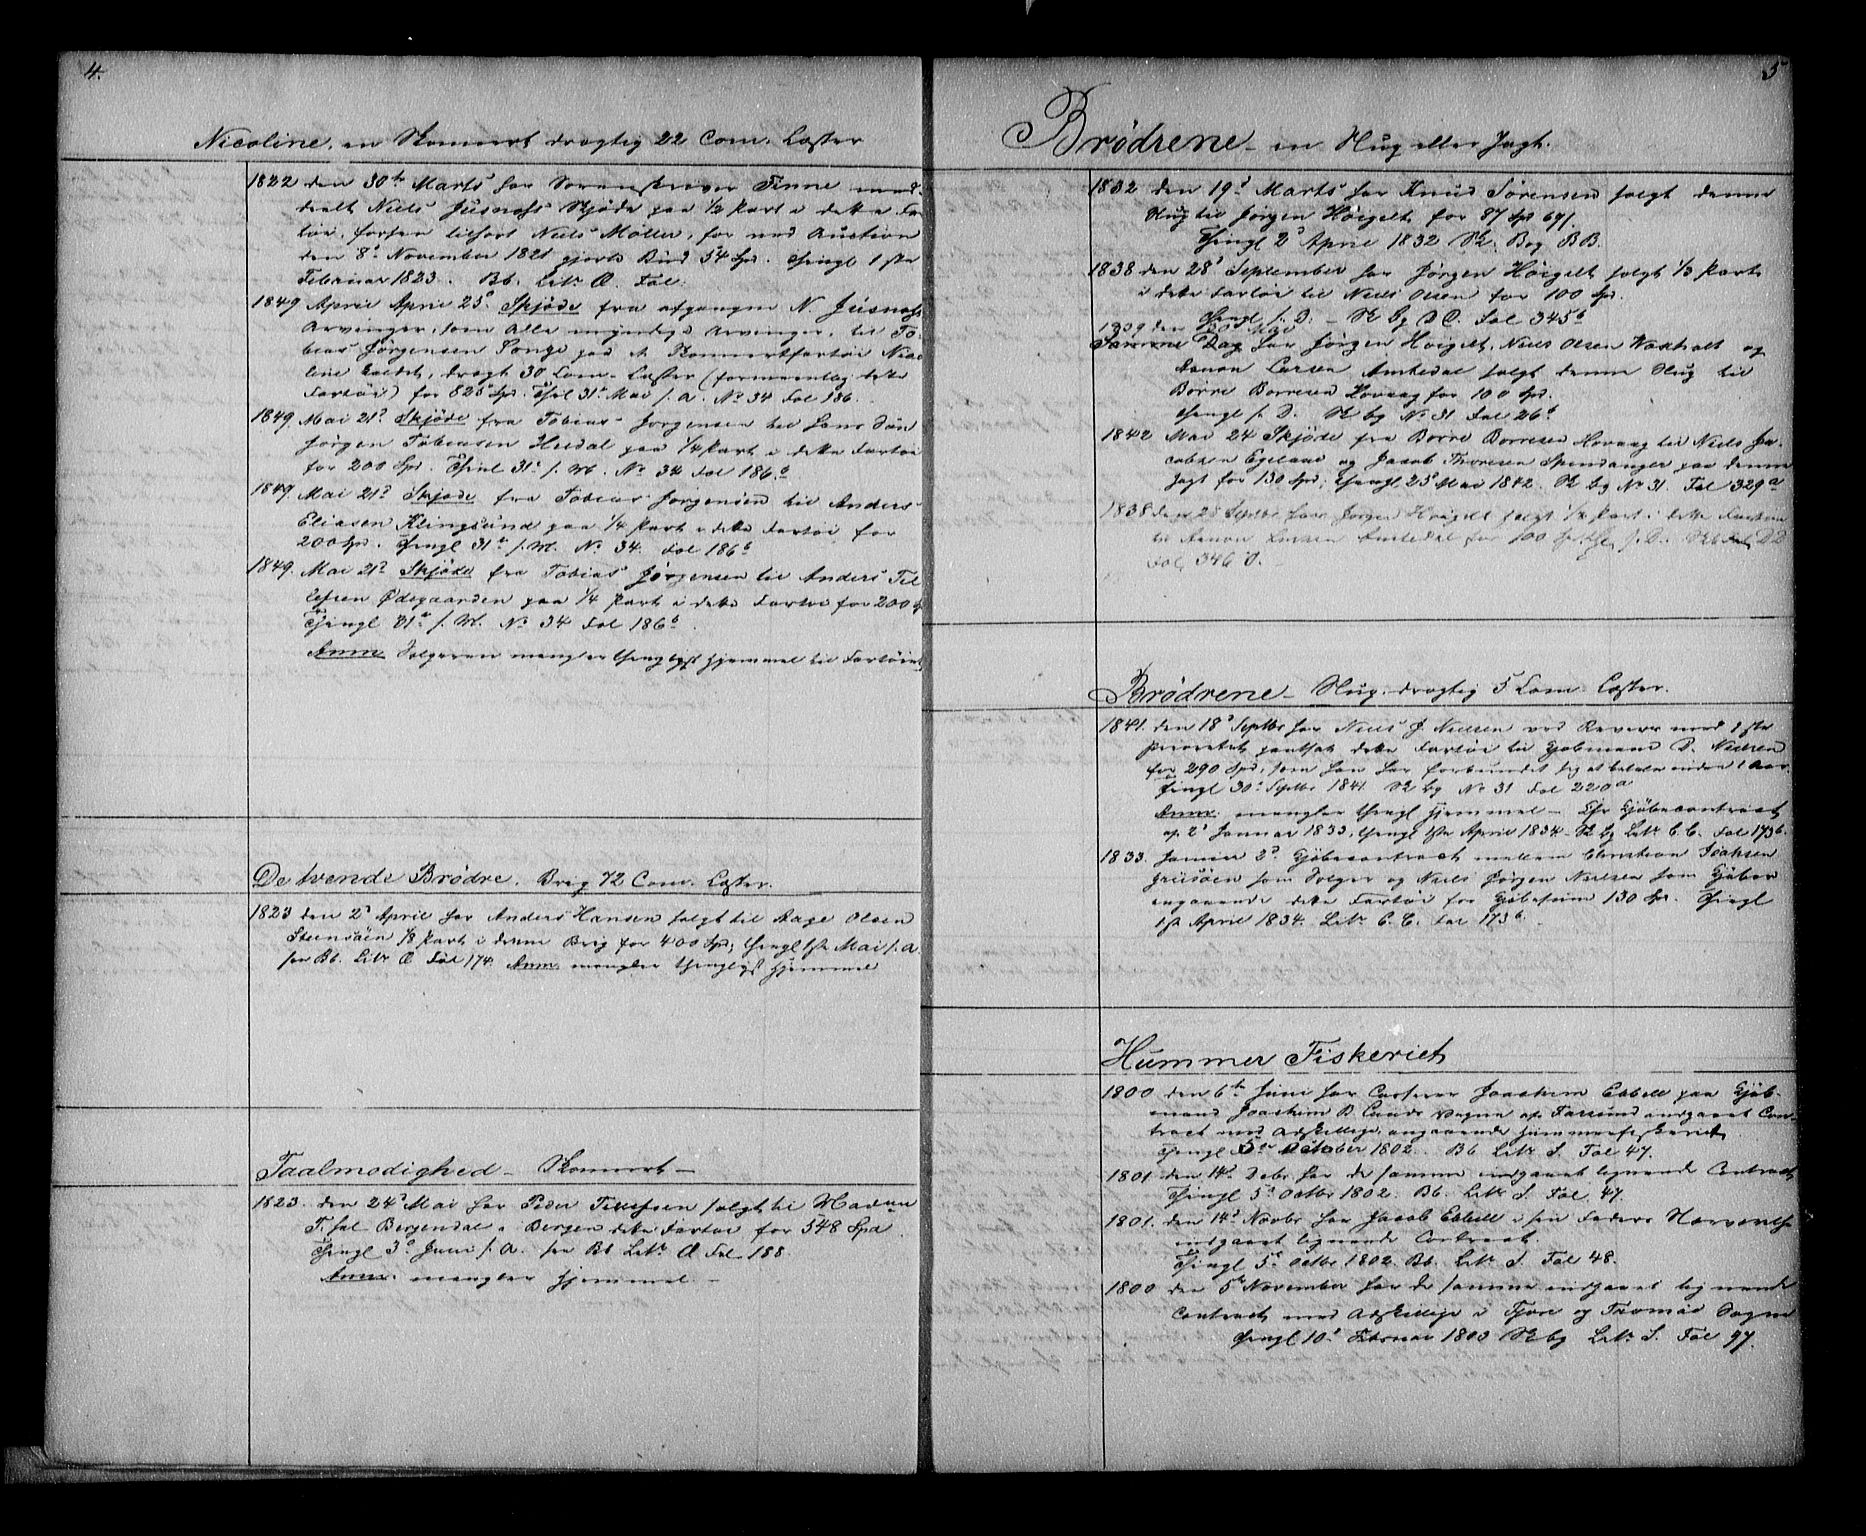 4.
Nicoline, en Skonnert drægtig 22 Com. Læster
1822 den 30te Marts har Sorenskriver Finne med-
deelt Niels Juspohs Skjöde paa 1/2 Part i dette Far
töi, forhen tilhört Niels Möller, for ved Auction
den 8de November 1821 gjorte Bud 54 Spd. Thingl 1ste
Februar 1823. Bb. Litr. Æ. Fol.
1849 April 25d Skjöde fra afgangne N.
Arvinger, som alle myndige Arvinger, til To-
bias Jörgensen Songe paa et Skonnertfartöi Nico
line kaldet, drægt 30 Com. Læster (formeentlig dette
Fartöi) for 825 Spd. Thgl 31te Mai s. A. No 34 Fol 186.
1849 Mai 21d Skjöde fra Tobias Jörgensen til hans Sön
Jörgen Tobiasen Heedal paa 1/4 Part i dette Fartöi
for 200 Spd. Thingl 31d s. M. No 34 Fol 186b
1849. Mai 21d Skjöde fra Tobias Jörgensen til Anders
Eliasen Klingsund paa 1/4 Part i dette Fartöi for
200 Spd. Thingl 31d s. M. No 34. Fol 186b
1849. Mai 21d Skjöde fra Tobias Jörgensen til Anders Tel
lefsen Ödegaarden paa 1/4 Part i dette Fartöi for 200 Sp
Thingl 31d s. M. No 34 Fol 186b
Anm. Sælgeren mangler thinglyst Hjemmel til Fartöiet
De tvende Brödre. Brig 72 Com. Læster.
1823 den 2d April har Anders Hansen solgt til Aage Olsen
Steensöen 1/8 Part i denne Brig for 400 Spd; Thingl 1ste Mai s. A.
see Bb. Litr Æ Fol 174. Anm. mangler thinglyst Hjemmel
Taalmodighed - Skonnert -
1823. den 24d Mai har Peder Tellefsen solgt til Madame
T. sal Bergendal i Bergen dette Fartöi for 548 Spd
Thingl 3d Juni s. A. see Bb Litr Æ Fol 188.
Anm. mangler Hjemmel -
5
Brödrene - en Slup eller Jagt.
1832 den 19d Marts har Knud Sörensen solgt denne
Slup til Jörgen Höigilt for 87 Spd 69s
Thingl 2d April 1832 Sk. Bog BB.
1838 den 28d September har Jörgen Höigilt solgt 1/3 Part
i dette Fartöi til Niels Olsen for 100 Spd.
Thingl s. D. - Sk bg DC. Fol 345b
1839 den 30d Mai
Samme Dag har Jörgen Höigilt, Niels Olsen og
Aanon Larsen Amtedal solgt denne Slup til
Börre Börresen Hovaag for 100 Spd.
Thingl s. D. Sk bg No 31 Fol 26b
1842 Mai 24 Skjöde fra Börre Börresen Hovaag til Niels Ja-
cobsen Egeland og Jacob Thorsen paa denne
Jagt for 130 Spd; Thingl 25d Mai 1842. Sk bg No 31. Fol 329a
1838 den 28 Septbr har Jörgen Höigilt solgt 1/3 Part i dette Fartöi
til Aanon Larsen Amtedal for 100 Spd Thgl s. D. Sk bg DD
Fol 346 b. -
Brödrene - Slup, drægtig 5 Com. Læster.
1841. den 18d Septbr har Niels J. Nielsen ved Revers med 1ste
Prioritet pantsat dette Fartöi til Kjöbmand D. Nielsen
for 290 Spd, som han har forbundet sig at betale inden 1 Aar.
Thingl 30d Septbr 1841. Sk bg No 31 Fol 220a
Anm. mangler thingl Hjemmel - Efr Kjöbecontract
af 2d Januar 1833, thingl 1ste April 1834 - Sk bg Litr C. C. Fol 173b.
1833. Januar 2d. Kjöbecontract mellem Christian Isaksen
Griisöen som Sælger og Niels Jörgen Nielsen som Kjöber
angaaende dette Fartöi for Kjöbesum 130 Spd. Thingl
1ste April 1834. Litr C. C. Fol 173b.
Hummer Fiskeriet
1800 den 6te Juni har Carsten Joachim Ebbell paa Kjöb-
mand Joachim B. Lunds Vegne af Farsund indgaaet Con-
tract med Adskillige, angaaende Hummerfiskeriet
Thingl 5d October 1802. Bb Litr S. Fol 47.
1801. den 14d Debr har de samme indgaaet lignende Contract
Thingl 5d Octbr 1802. Bb. Litr S. Fol 47.
1801. den 14d Novbr har Jacob Ebbell i sin Faders Nærværelse
indgaaet lignende Contract.
Thingl 5d Octbr 1802. Bb. Litr S. Fol 48.
1800 den 5te November har de samme indgaaet lignende
Contract med Adskillige i Tjore og Tromöe Sogne
Thingl 10d Februar 1803 Sk bg Litr S. Fol 97.